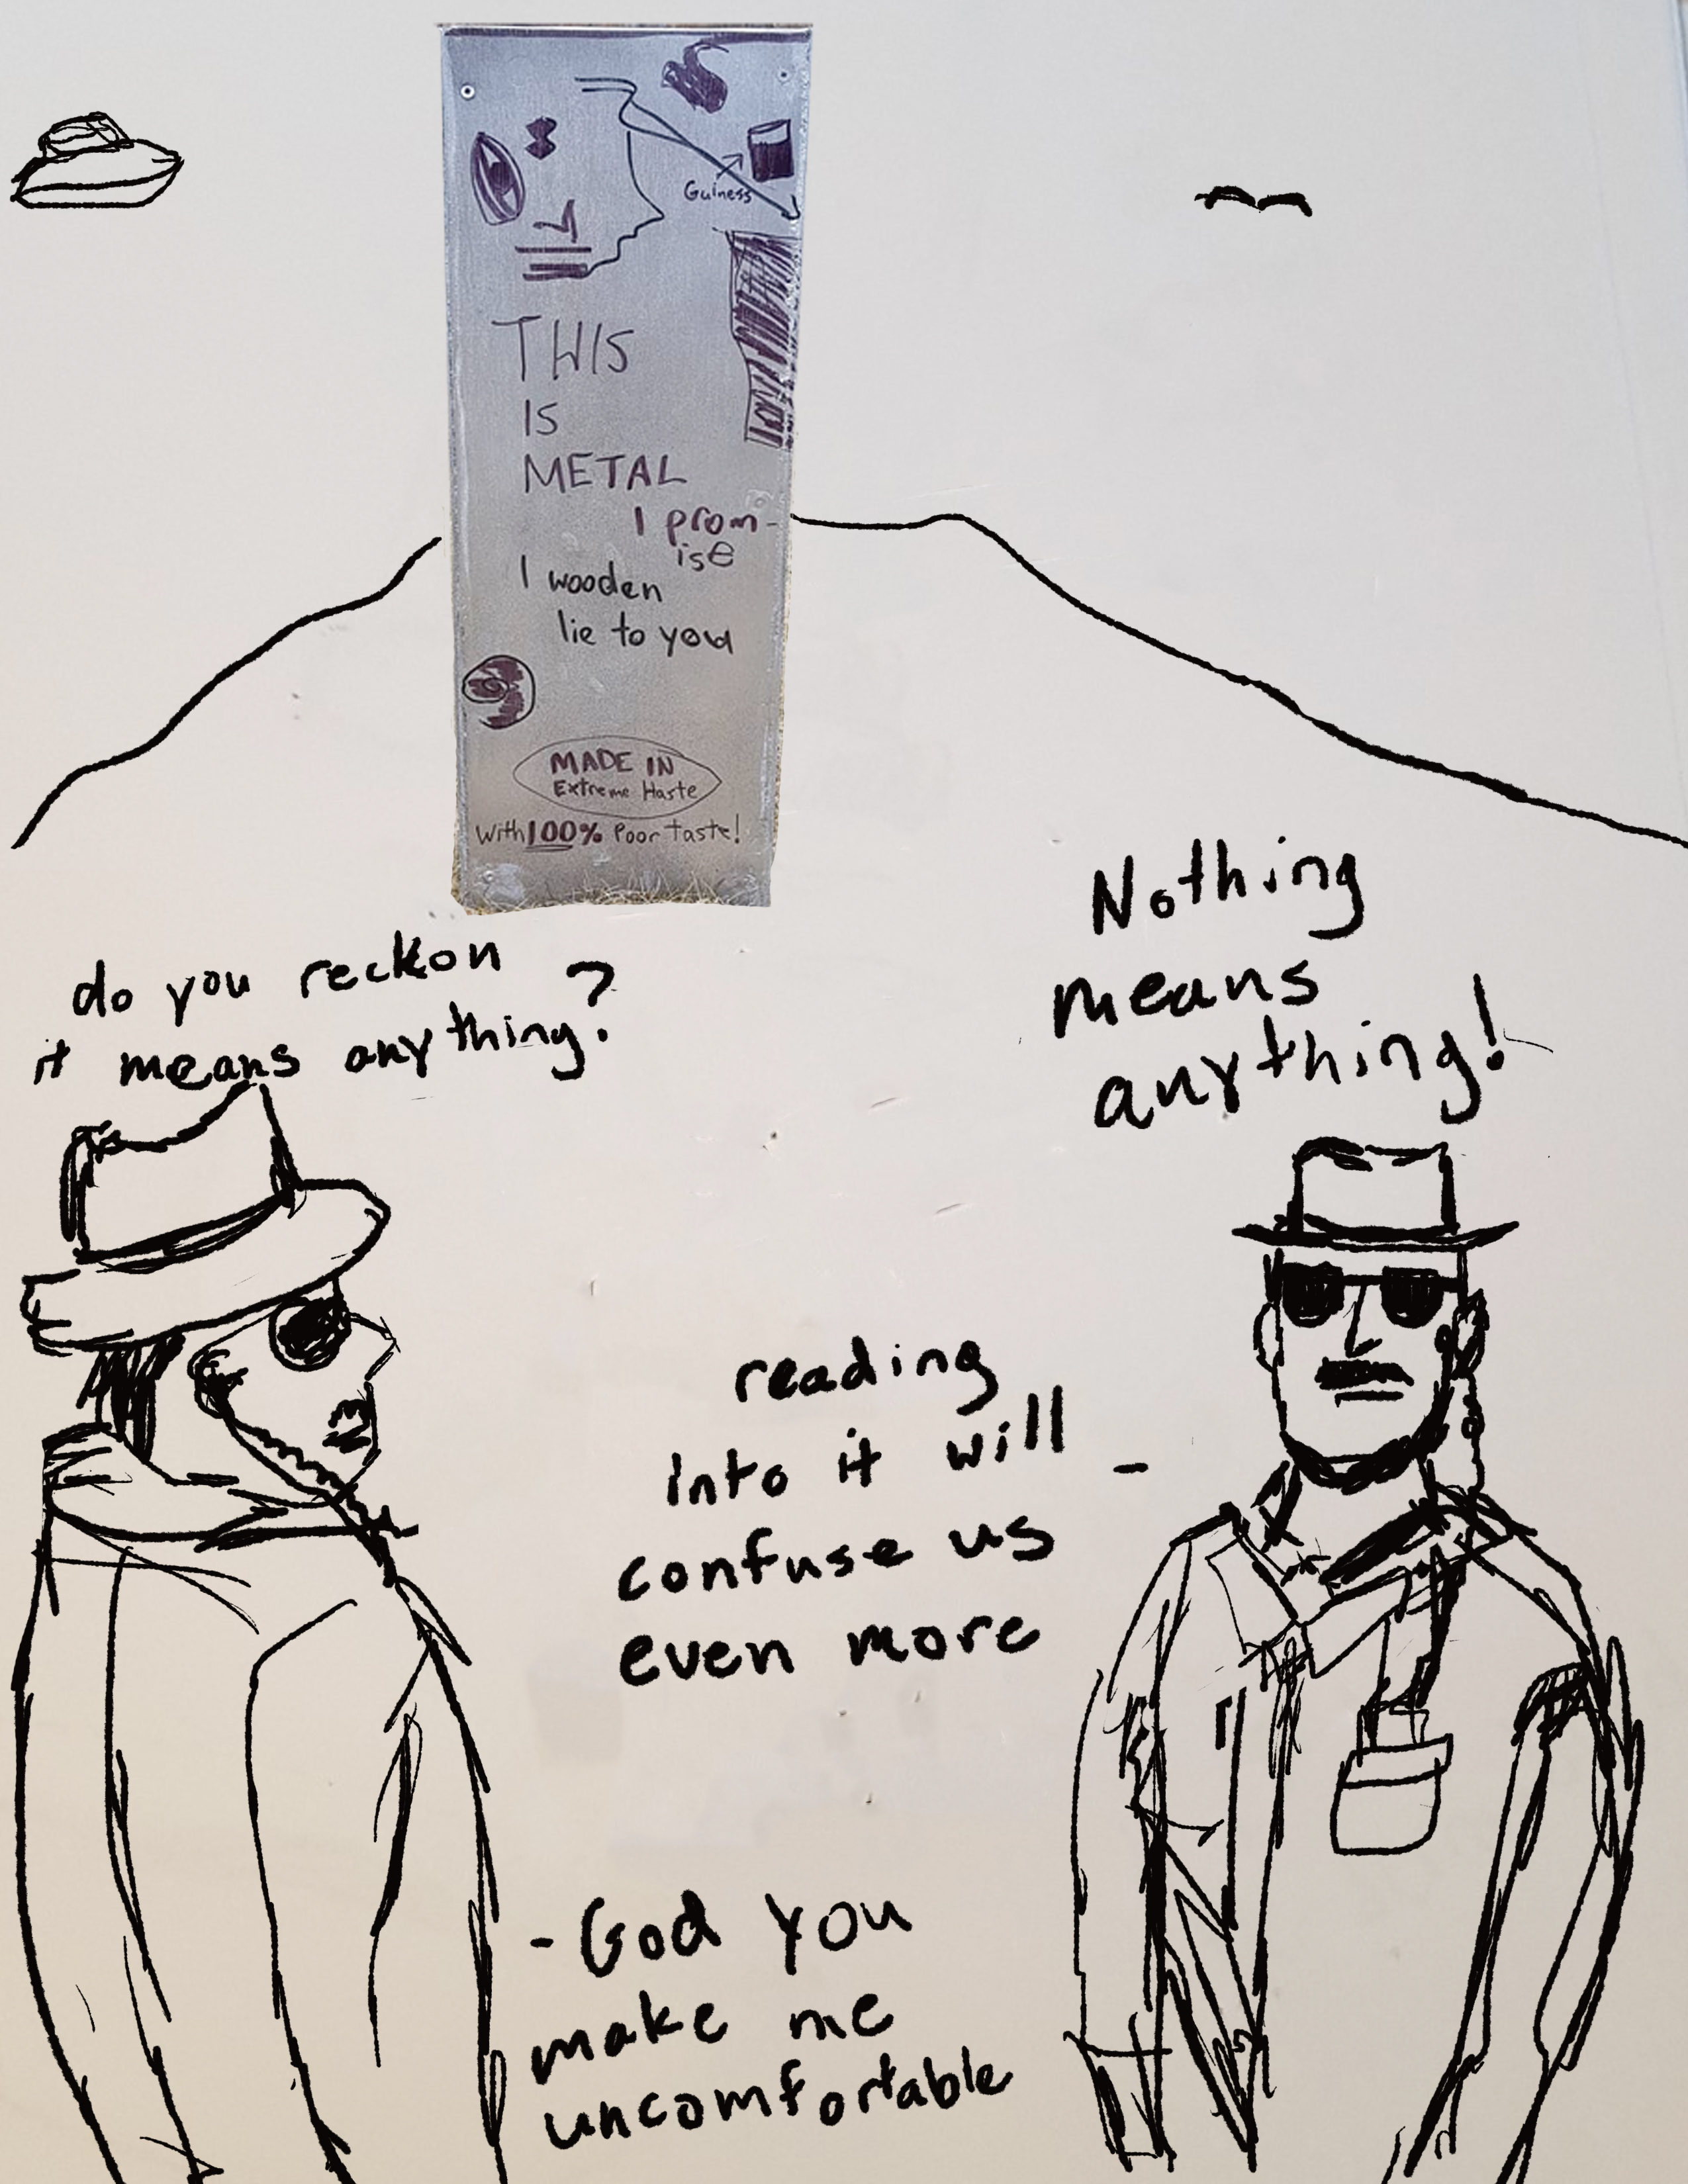 Guiness
THIS
IS
METAL
I prom-
ise
I wooden
lie to you
MADE IN
Extreme Haste
With 100% Poor taste!
do you reckon
it means anything?
Nothing
means
anything!
reading
into it will -
confuse us
even more
- God you
make me
uncomfortable